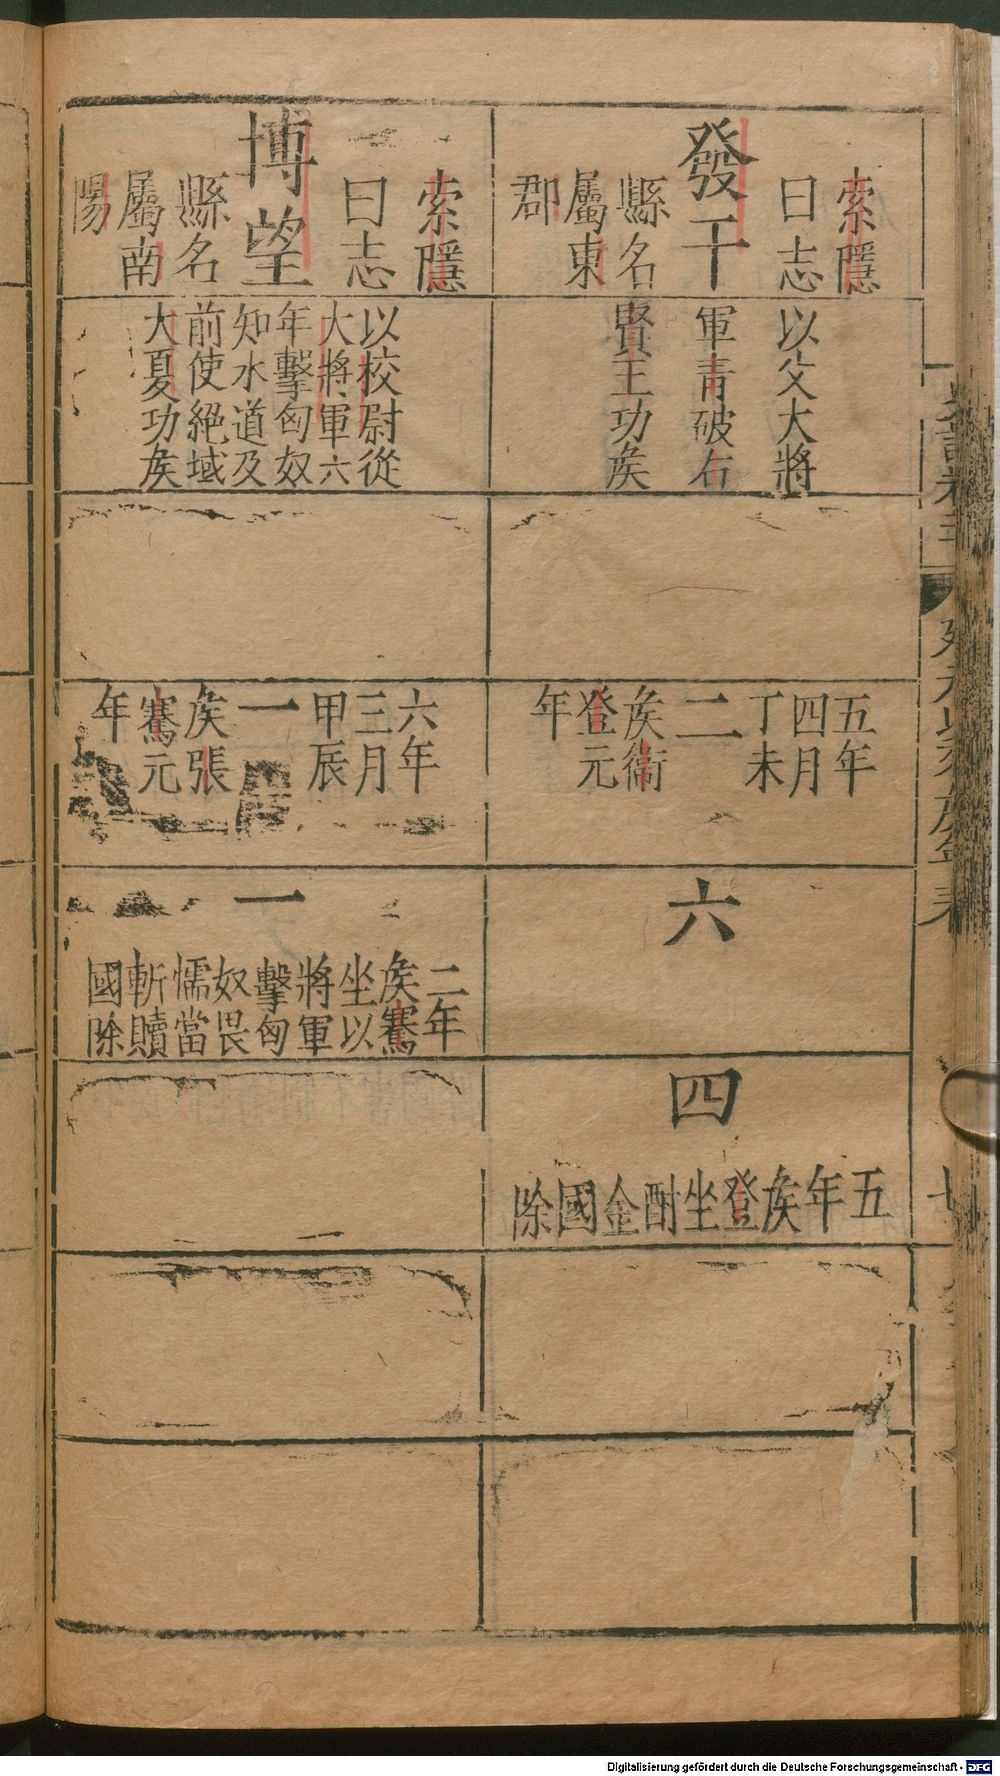 發干
索隱
曰志
縣名
屬東
郡
以父大將
軍青破右
賢王功矦
五年
四月
丁未
二
矦衞
登元
年
六
四
五年矦登坐酎金國除
博望
索隱
曰志
縣名
屬南
陽
以校尉從
大將軍六
年擊匈奴
知水道及
前使絕域
大夏功矦
六年
三月
甲辰
一
矦張
騫元
年
一
二年
矦騫
坐以
將軍
擊匈
奴畏
懦當
斬贖
國除
Digitalisierung gefördert durch die Deutsche Forschungsgemeinschaft - DFG